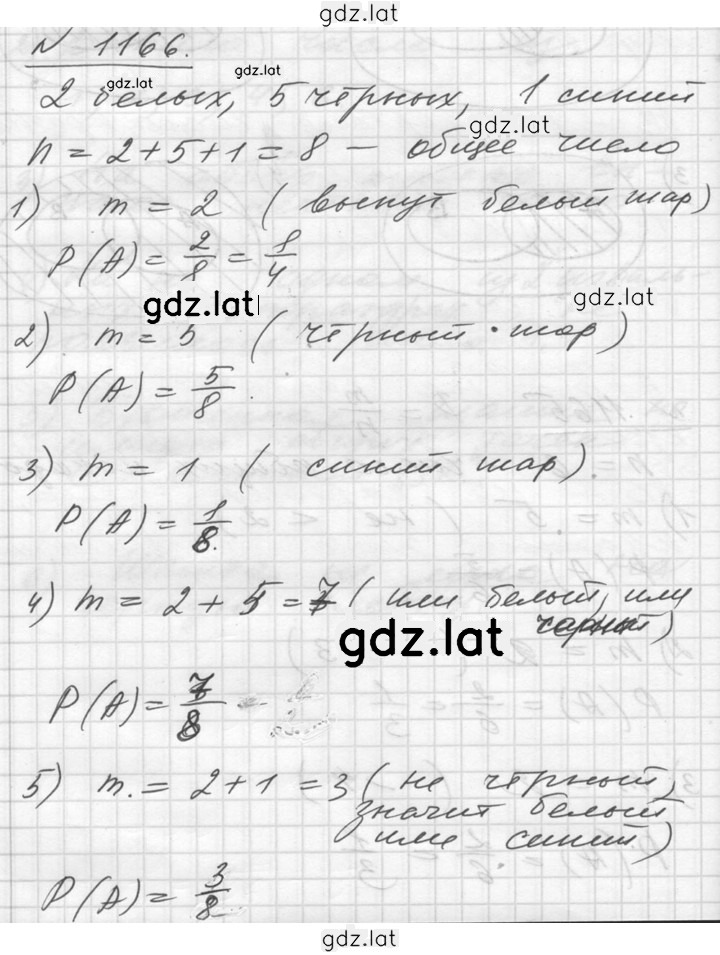 gdz.lat
N 1166.
gdz.lat gdz.lat
2 белых, 5 чёрных, 1 синий
gdz.lat
n = 2+5+1 = 8 — общее число
1) m = 2 ( вынут белый шар)
P(A) = 2/8 = 1/4
gdz.lat gdz.lat
2) m = 5 ( чёрный шар)
P(A) = 5/8.
3) m = 1 ( синий шар).
P(A) = 1/8.
4) m = 2 + 5 = 7 ( или белый, или
черный)
gdz.lat
P(A) = 7/8
5) m. = 2+1 = 3 ( не чёрный,
значит белый
или синий)
P(A) = 3/8
gdz.lat